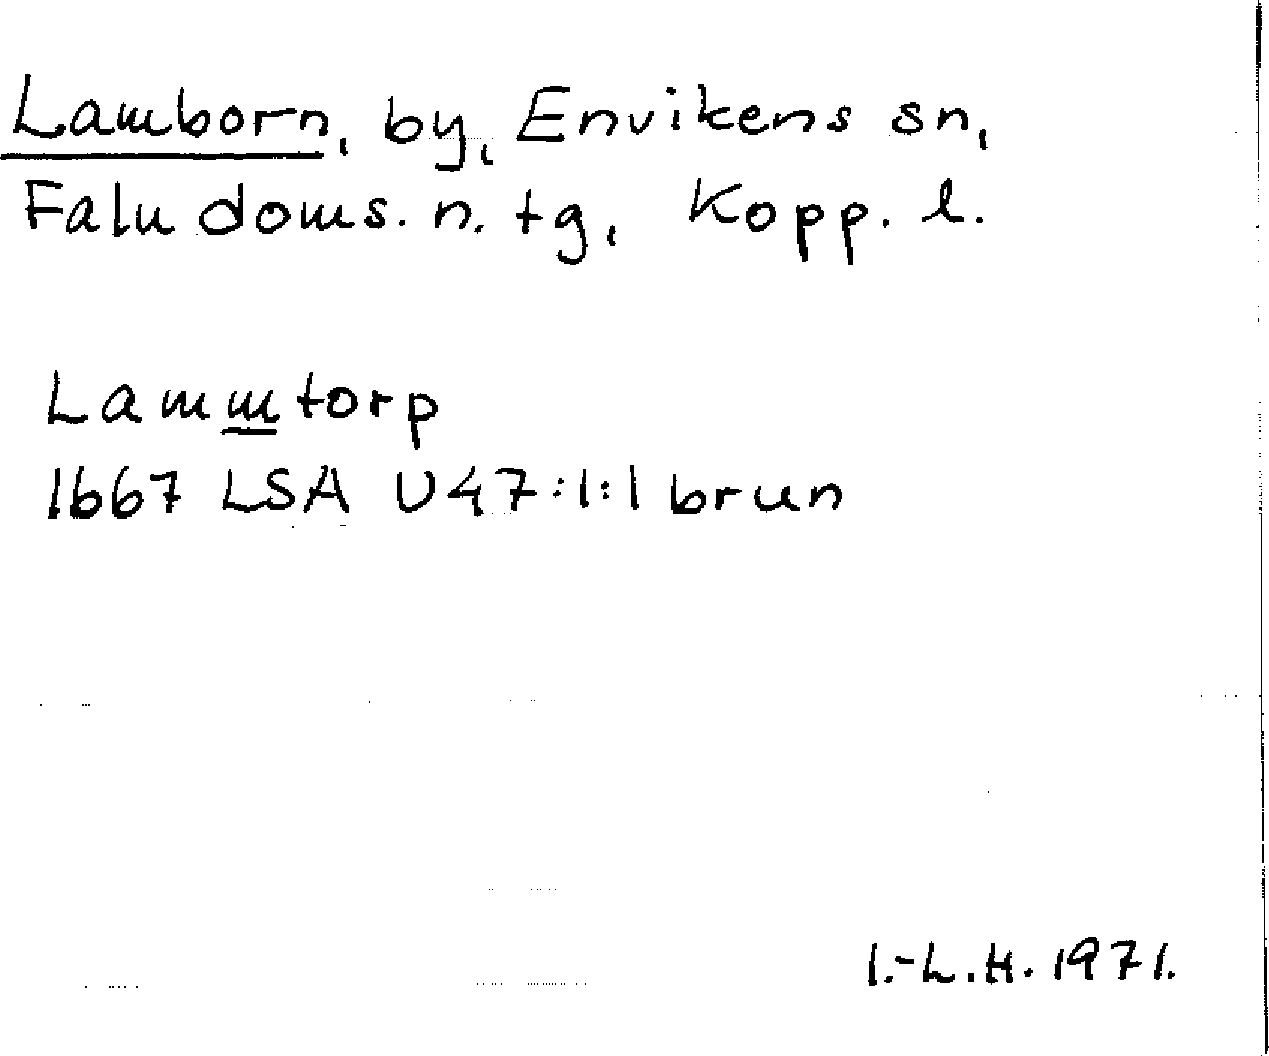 Lamborn, by, Envikens sn,
Falu doms. n. tg, Kopp. l.
Lammtorp
1667 LSA U47:1:1 brun
I.-L.H. 1971.